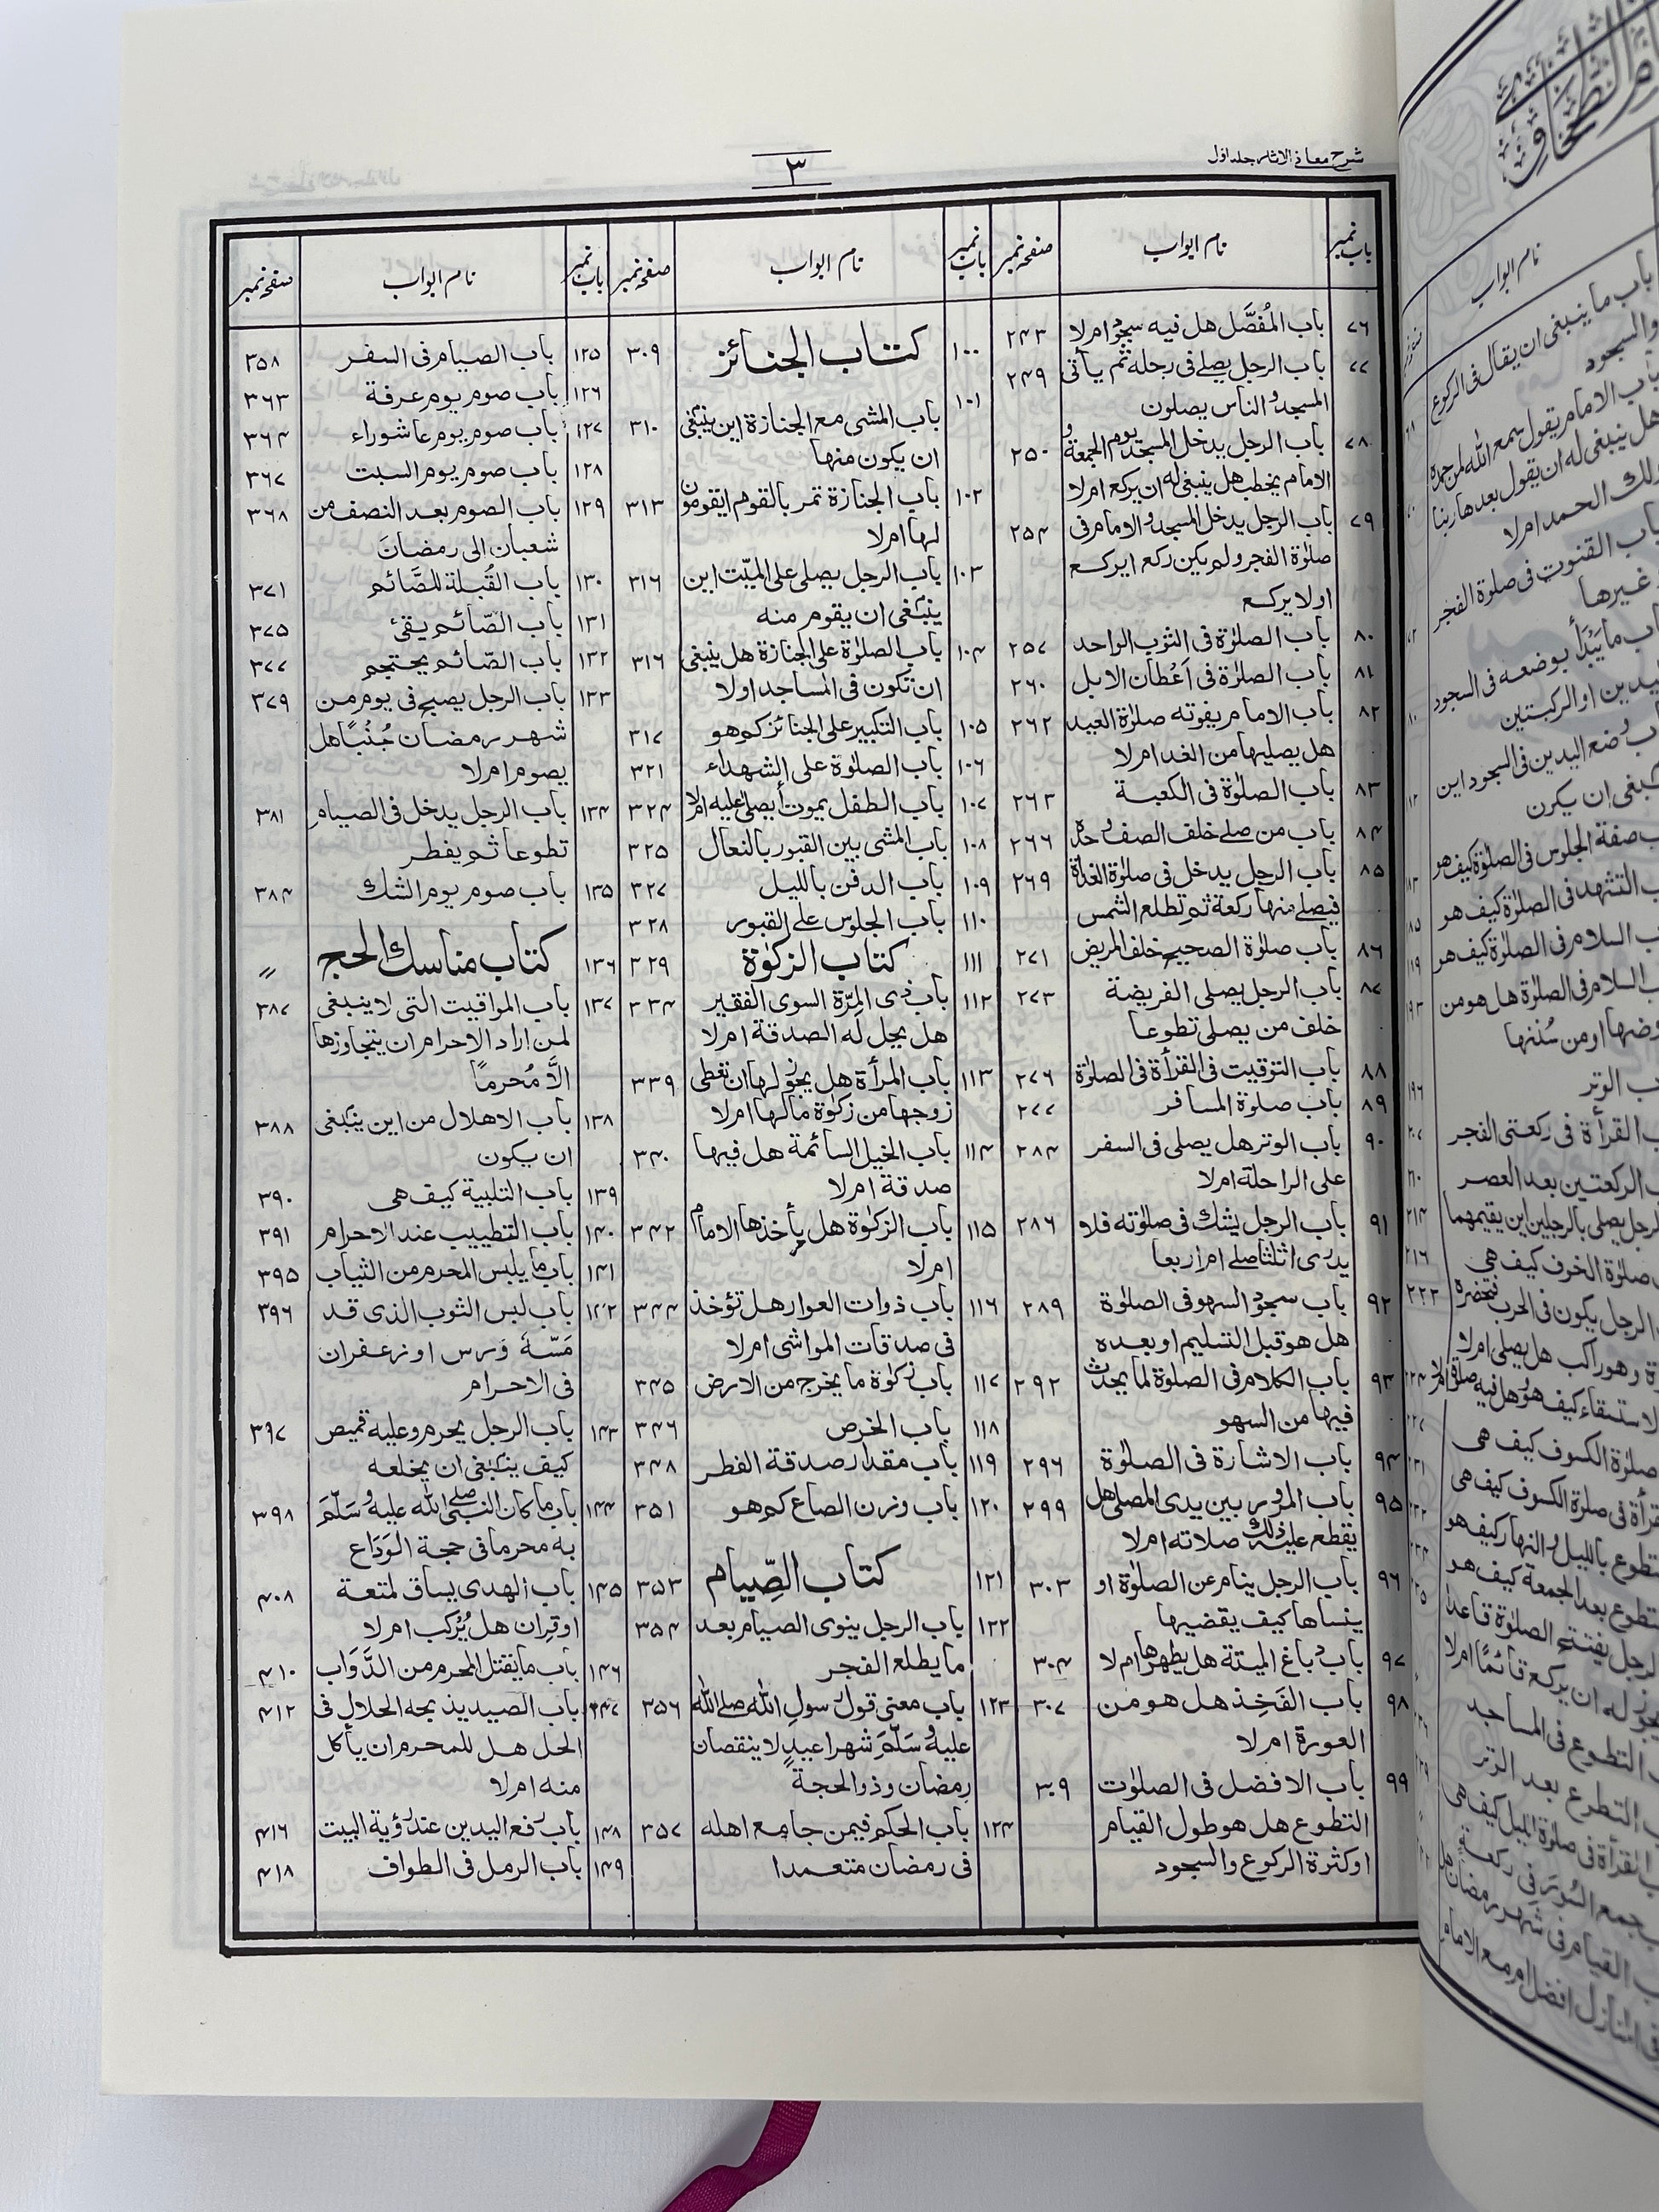 شرح معانی الاثار جلد اول
٣
باب نمبر
نام ابواب
صفحہ نمبر
٧٦ باب المُفصَّل هل فيه سجود ام لا ٢٤٣
٧٧ باب الرجل يصلے فی رحله ثم يأتی ٢٤٩
المسجد والناس يصلون
٧٨ باب الرجل يدخل المسجد يوم الجمعة و ٢٥٠
الامام يخطب هل ينبغی له ان يركع ام لا
٧٩ باب الرجل يدخل المسجد والامام فی ٢٥٤
صلوٰة الفجر ولم يكن ركع ايركع
اولا يركع
٨٠ باب الصلوٰة فی الثوب الواحد ٢٥٧
٨١ باب الصلوٰة فی اَعْطان الابل ٢٦٠
٨٢ باب الامام يفوته صلوٰة العيد ٢٦٢
هل يصليها من الغد ام لا
٨٣ باب الصلوٰة فی الكعبة ٢٦٣
٨٤ باب من صلے خلف الصف وحدہ ٢٦٦
٨٥ باب الرجل يدخل فی صلوٰة الغداة ٢٦٩
فيصلے منها ركعة ثم تطلع الشمس
٨٦ باب صلوٰة الصحيح خلف المريض ٢٧١
٨٧ باب الرجل يصلی الفريضة ٢٧٣
خلف من يصلی تطوعا
٨٨ باب التوقيت فی القرأة فی الصلوٰة ٢٧٦
٨٩ باب صلوة المسافر ٢٧٧
٩٠ باب الوتر هل يصلی فی السفر ٢٨٤
علی الراحلة ام لا
٩١ باب الرجل يشك فی صلوٰته فلا ٢٨٦
يدری اثلثا صلے ام اربعا
٩٢ باب سجود السهو فی الصلوٰة ٢٨٩
هل هو قبل التسليم او بعده
٩٣ باب الكلام فی الصلوٰة لما يحدث ٢٩٢
فيها من السهو
٩٤ باب الاشارة فی الصلوٰة ٢٩٦
٩٥ باب المرور بين يدی المصلی هل ٢٩٩
يقطع عليه ذلك صلاته ام لا
٩٦ باب الرجل ينام عن الصلوٰة او ٣٠٣
ينساها كيف يقضيها
٩٧ باب دباغ الميتة هل يطهرها ام لا ٣٠٤
٩٨ باب الفَخِذ هل هو من ٣٠٧
العورة ام لا
٩٩ باب الافضل فی الصلوٰت ٣٠٩
التطوع هل هو طول القيام
او كثرة الركوع والسجود
باب نمبر
نام ابواب
صفحہ نمبر
١٠٠ كتاب الجنائز ٣٠٩
١٠١ باب المشی مع الجنازة اين ينبغی ٣١٠
ان يكون منها
١٠٢ باب الجنازة تمر بالقوم ايقومون ٣١٣
لها ام لا
١٠٣ باب الرجل يصلی علی الميّت اين ٣١٦
ينبغی ان يقوم منه
١٠٤ باب الصلوٰة علی الجنازة هل ينبغی ٣١٦
ان تكون فی المساجد اولا
١٠٥ باب التكبير علی الجنائز كم هو ٣١٧
١٠٦ باب الصلوٰة علی الشهداء ٣٢١
١٠٧ باب الطفل يموت أيصلی عليه ام لا ٣٢٤
١٠٨ باب المشی بين القبور بالنعال ٣٢٥
١٠٩ باب الدفن بالليل ٣٢٧
١١٠ باب الجلوس علے القبور ٣٢٨
١١١ كتاب الزكوٰة ٣٢٩
١١٢ باب ذی المِرّة السوی الفقير ٣٣٤
هل يحل له الصدقة ام لا
١١٣ باب المرأة هل يجوز لها ان تعطی ٣٣٩
زوجها من زكوٰة مالها ام لا
١١٤ باب الخيل السائمة هل فيها ٣٤٠
صدقة ام لا
١١٥ باب الزكوٰة هل يأخذها الامام ٣٤٢
ام لا
١١٦ باب ذوات العوار هل تؤخذ ٣٤٤
فی صدقات المواشی ام لا
١١٧ باب زكوٰة ما يخرج من الارض ٣٤٥
١١٨ باب الخرص ٣٤٦
١١٩ باب مقدار صدقة الفطر ٣٤٨
١٢٠ باب وزن الصاع كم هو ٣٥١
١٢١ كتاب الصِّيام ٣٥٣
١٢٢ باب الرجل ينوی الصيام بعد ٣٥٤
ما يطلع الفجر
١٢٣ باب معنی قول رسول الله صلے الله ٣٥٦
عليه وسَلَّمَ شهرا عيدٍ لا ينقصان
رمضان وذو الحجة
١٢٤ باب الحكم فيمن جامع اهله ٣٥٧
فی رمضان متعمدا
باب نمبر
نام ابواب
صفحہ نمبر
١٢٥ باب الصيام فی السفر ٣٥٨
١٢٦ باب صوم يوم عرفة ٣٦٣
١٢٧ باب صوم يوم عاشوراء ٣٦٤
١٢٨ باب صوم يوم السبت ٣٦٧
١٢٩ باب الصوم بعد النصف من ٣٦٨
شعبان الی رمضانَ
١٣٠ باب القُبلة للصَّائم ٣٧١
١٣١ باب الصّائم يقیٔ ٣٧٥
١٣٢ باب الصّائم يحتجم ٣٧٧
١٣٣ باب الرجل يصبح فی يوم من ٣٧٩
شهر رمضان جُنُبًا هل
يصوم ام لا
١٣٤ باب الرجل يدخل فی الصيام ٣٨١
تطوعا ثم يفطر
١٣٥ باب صوم يوم الشك ٣٨٤
١٣٦ كتاب مناسك الحج ״
١٣٧ باب المواقيت التی لا ينبغی ٣٨٧
لمن اراد الاحرام ان يتجاوزها
الَّا مُحرماً
١٣٨ باب الاهلال من اين ينبغی ٣٨٨
ان يكون
١٣٩ باب التلبية كيف هی ٣٩٠
١٤٠ باب التطييب عند الاحرام ٣٩١
١٤١ باب ما يلبس المحرم من الثياب ٣٩٥
١٤٢ باب لبس الثوب الذی قد ٣٩٦
مَسّهٗ وَرس او زعفران
فی الاحرام
١٤٣ باب الرجل يحرم وعليه قميص ٣٩٧
كيف ينبغی ان يخلعه
١٤٤ باب ما كان النبی صلے الله عليه وسَلَّمَ ٣٩٨
به محرما فی حجة الوَدَاع
١٤٥ باب الهدی يساق لمتعة ٤٠٨
او قِران هل يُرْكب ام لا
١٤٦ باب ما يقتل المحرم من الدَّوَاب ٤١٠
١٤٧ باب الصيد يذبحه الحلال فی ٤١٢
الحل هل للمحرم ان يأكل
منه ام لا
١٤٨ باب رفع اليدين عند رؤية البيت ٤١٦
١٤٩ باب الرمل فی الطواف ٤١٨
نام ابواب
باب ما ينبغی ان يقال فی الركوع
والسجود
باب الامام يقول سمع الله لمن حمدہ
هل ينبغی له ان يقول بعدها ربنا
ولك الحمد ام لا
باب القنوت فی صلوة الفجر
وغيرها